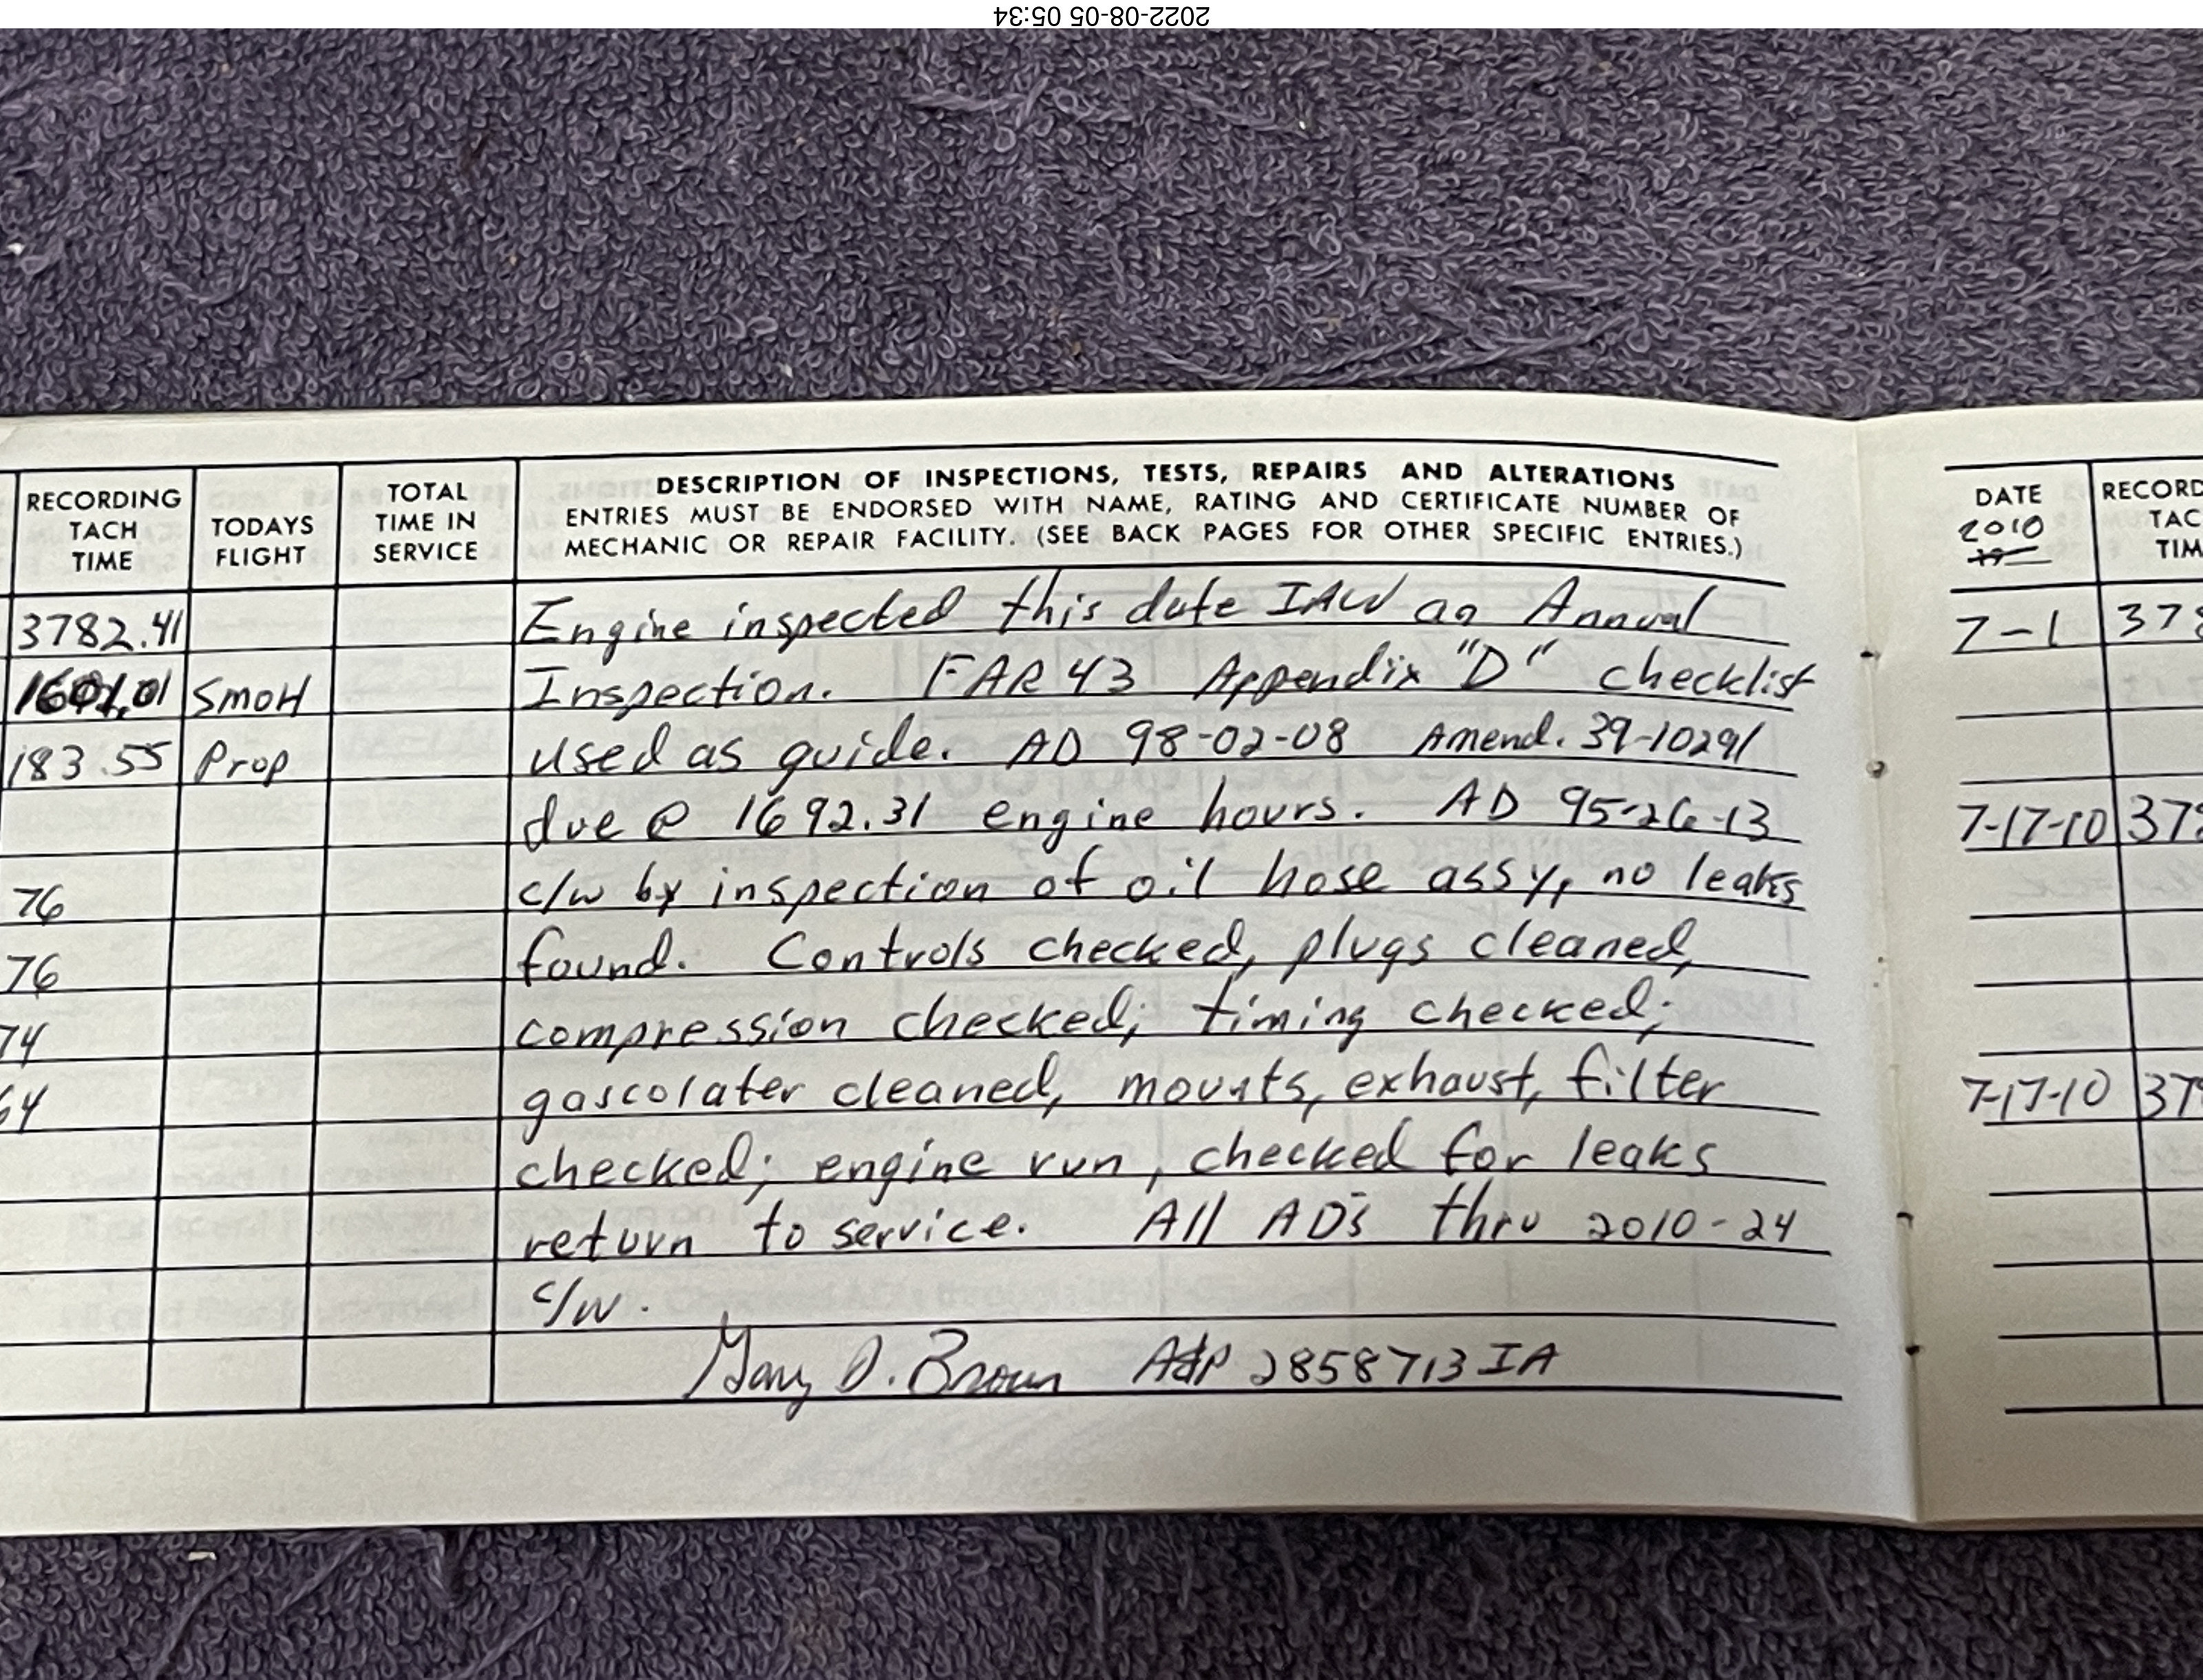 2022-08-05 05:34
RECORDING TACH TIME
TODAYS FLIGHT
TOTAL TIME IN SERVICE
DESCRIPTION OF INSPECTIONS, TESTS, REPAIRS AND ALTERATIONS
ENTRIES MUST BE ENDORSED WITH NAME, RATING AND CERTIFICATE NUMBER OF
MECHANIC OR REPAIR FACILITY. (SEE BACK PAGES FOR OTHER SPECIFIC ENTRIES.)
3782.41 Engine inspected this date IAW an Annual
SMOH Inspection. FAR 43 Appendix "D" checklist
183.55 Prop used as guide. AD 98-02-08 Amend. 39-10291
due @ 1692.31 engine hours. AD 95-26-13
76 c/w by inspection of oil hose assy, no leaks
76 found. Controls checked, plugs cleaned,
74 compression checked; timing checked;
64 gascolater cleaned, mounts, exhaust, filter
checked; engine run, checked for leaks
return to service. All AD's thru 2010-24
c/w.
Gary D. Brown A&P 2858713 IA
DATE
2010
19
RECORD
TAC
TIM
7-1 378
7-17-10 378
7-17-10 378